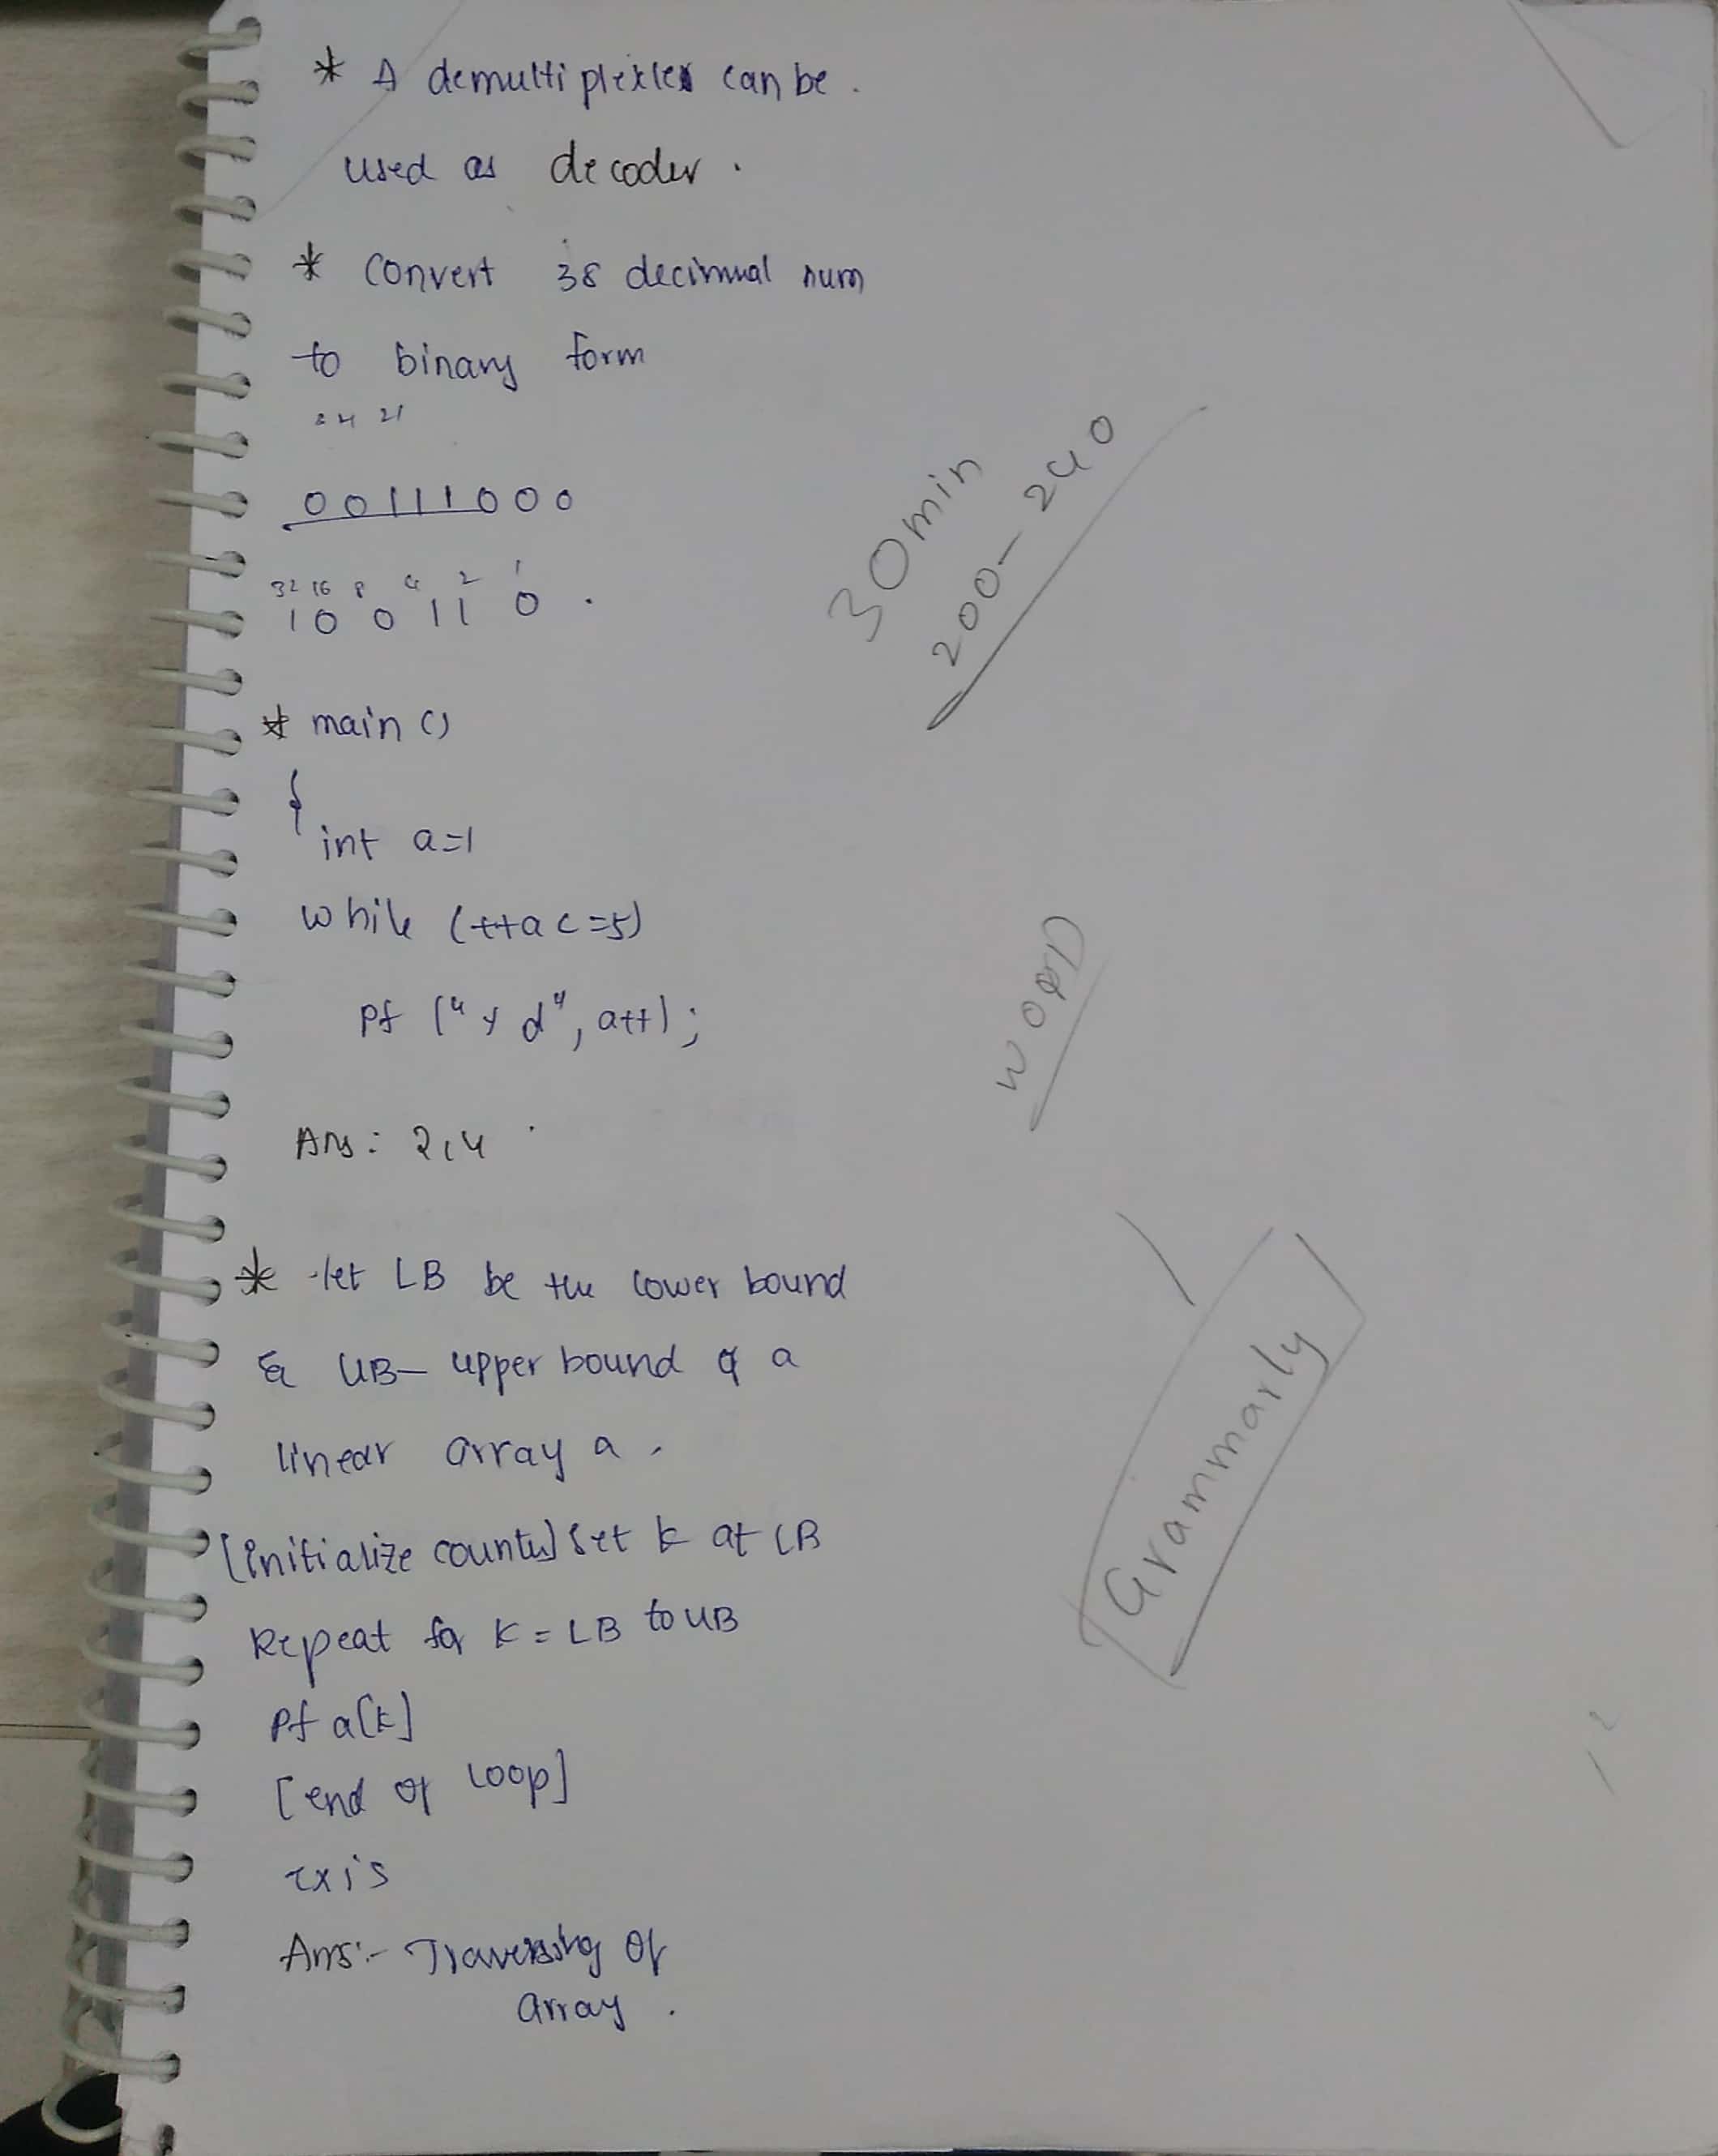 * A demultiplexler can be.
used as decoder.
* convert 38 decimmal num
to binary form
8421
00111000
32 16 8 4 2 1
1 0 0 1 1 0 .
* main()
{
int a=1
while (++a <=5)
pf ("%d", a++);
Ans: 2,4
* let LB be the lower bound
& UB- upper bound of a
linear array a.
[initialize counter] set k at LB
Repeat for K = LB to UB
Pf a[k]
[end of loop]
exis
Ans:- Traversing of
array.
30min
200-240
WORD
Grammarly